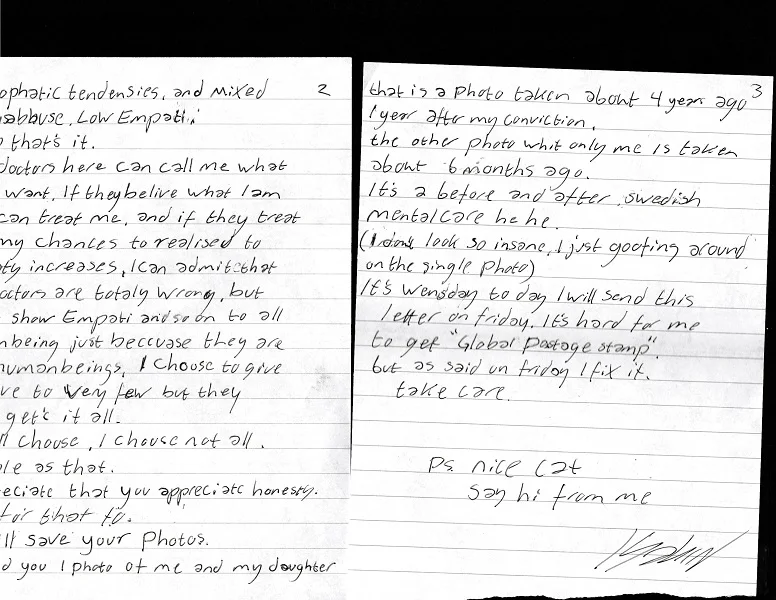 2
ophatic tendensies, and mixed
sabbuse, Low Empati.
that's it.
doctors here can call me what
want, If theybelive what I am
can treat me, and if they treat
my chances to realised to
ty increases, I can admit that
octors are totaly wrong, but
show Empati and so on to all
nbeing just beccuase they are
humanbeings, I choose to give
ve to very few but they
get's it all.
ll choose, I choose not all.
le as that.
eciate that you appreciate honesty.
for that to.
ll save your Photos.
d you 1 photo of me and my daughter
3
that is a photo taken about 4 year ago
1 year after my conviction.
the other photo whit only me is taken
about 6 months ago.
It's a before and after swedish
mentalcare he he.
(I dont look so insane, I just goofing around
on the single photo)
It's Wensday to day I will send this
letter on friday. It's hard for me
to get "Global Postage stamp".
but as said on friday I fix it.
take care.
Ps. nice cat
say hi from me